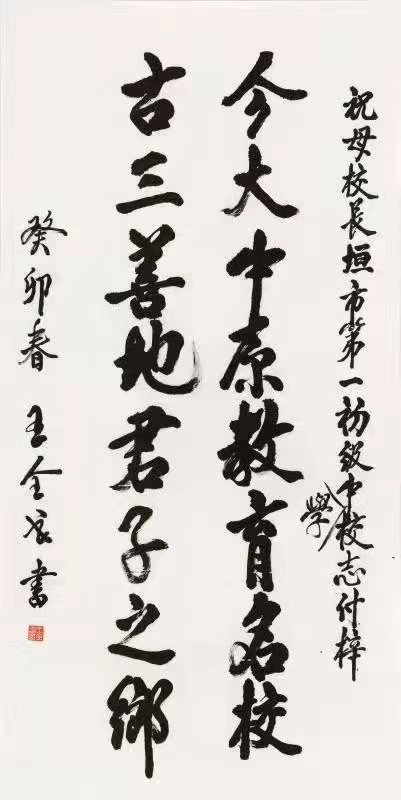 祝母校長垣市第一初級中學校志付梓
今大中原教育名校
古三善地君子之鄉
癸卯春 王全成書